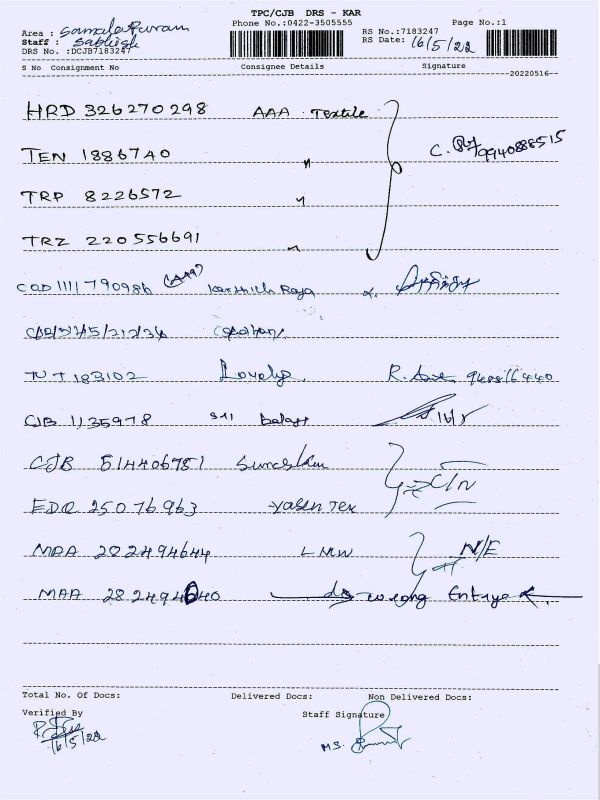 TPC/CJB DRS - KAR
Phone No.:0422-3505555
Page No.:1
Area : Samalapuram
Staff :
DRS No. :DCJB7183247
RS No.:7183247
RS Date: 16/5/22
S No Consignment No Consignee Details Signature
20220516
HRD 326270298 AAA Textile
TEN 1886740 "
C. 9940888515
TRP 8226572 "
TRZ 220556691 "
COD 1111790986 Karthik Raja
TUT 183102 Lovely. R. 
CJB 1135978 Sri balaji 16/5
CJB 614406751 Sureshkm
EDQ 25076963 Yasen Tex
MAA 282494644 LMW N/E
MAA 282494640 wrong Entry
Total No. Of Docs: Delivered Docs: Non Delivered Docs:
Verified By Staff Signature
16/5/22
MS.